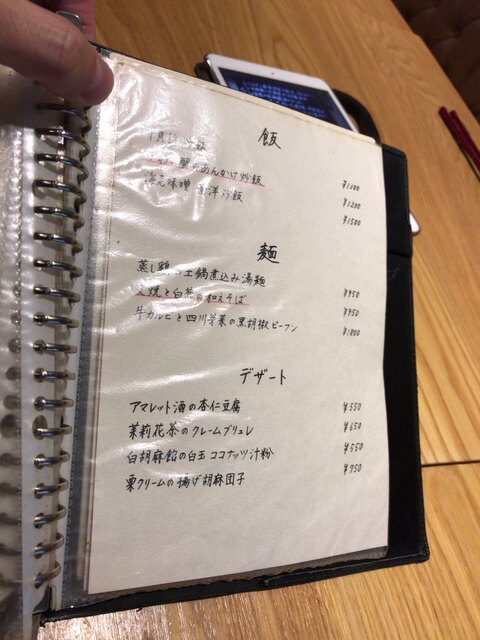 飯
炒飯 ¥1300
蟹のあんかけ炒飯 ¥1200
味噌 南洋炒飯 ¥1500
麺
蒸し鶏の土鍋煮込み湯麺 ¥950
叉焼と白葱の和えそば ¥950
牛カルビと四川芽菜の黒胡椒ビーフン ¥1800
デザート
アマレット酒の杏仁豆腐 ¥550
茉莉花茶のクレームブリュレ ¥650
白胡麻餡の白玉 ココナッツ汁粉 ¥550
栗クリームの揚げ胡麻団子 ¥750